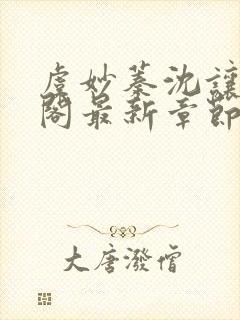 虞妙蓁沈讓
閣最新章節
大唐潑僧